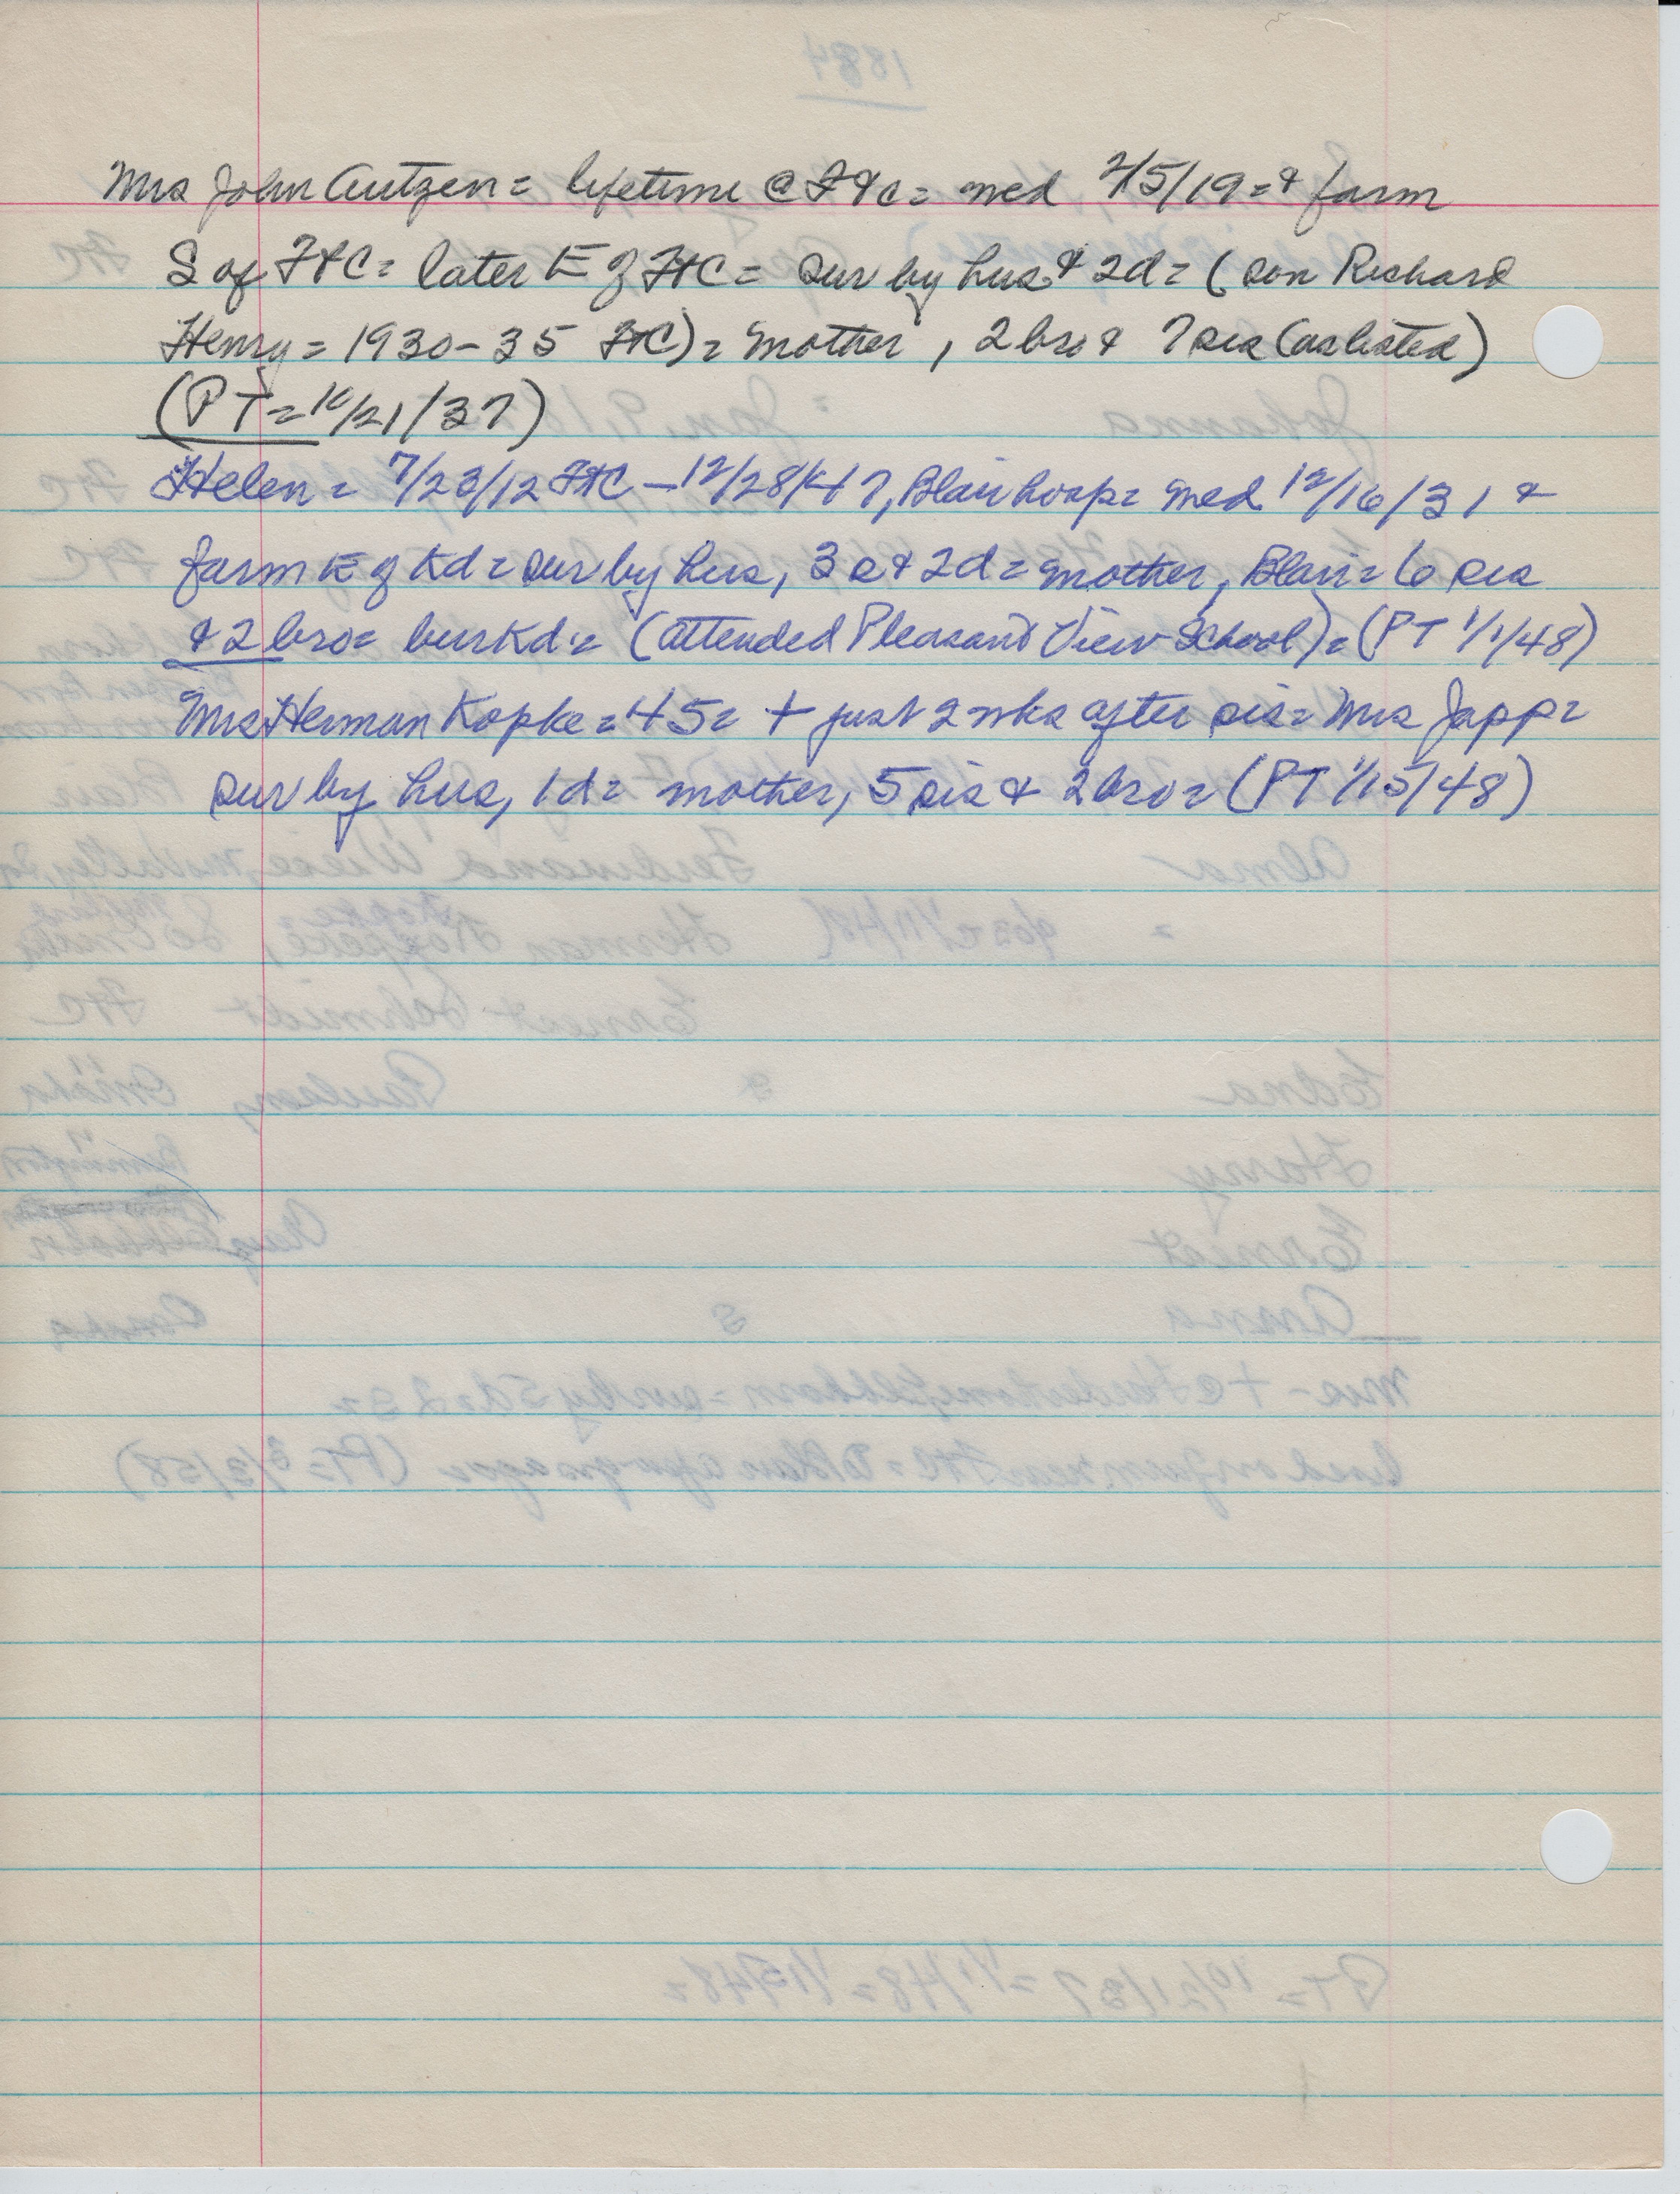 Mrs John Autzen = lifetime @ FtC = med 2/5/19 = & farm
S of FtC = later E of FtC = sur by hus & 2d = (son Richard
Henry = 1930-35 FtC) = mother, 2 bro & 7 sis (as listed)
(PT = 10/21/37)
Helen = 7/23/12 FtC - 12/28/47, Blair hosp = med 12/16/31 &
farm E of Kd = sur by hus, 3s & 2d = mother, Blair = 6 sis
& 2 bro = bur Kd = (attended Pleasant View School) = (PT 1/1/48)
Mrs Herman Kopke = 45 = + just 2 wks after sis = Mrs Japp =
sur by hus, 1d = mother, 5 sis & 2 bro = (PT 1/15/48)